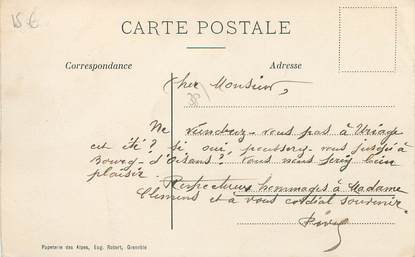 15 €
CARTE POSTALE
Correspondance
Adresse
Cher Monsieur,
(38)
Ne viendrez-vous pas à Uriage
cet été? si oui, pousserez-vous jusqu'à
Bourg-d'Oisans? Vous nous feriez bien
plaisir.
Respectueux hommages à Madame
Clemens et à vous cordial souvenir
Papeterie des Alpes, Eug. Robert, Grenoble